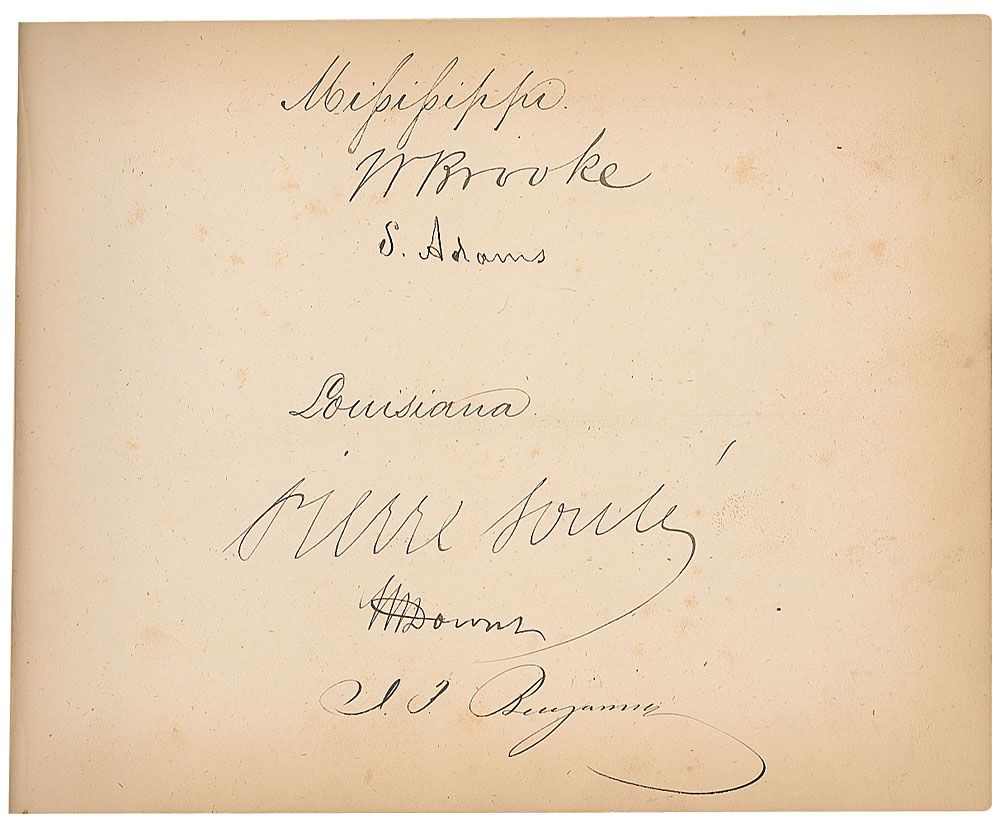 Mißißippi.
W Brooke
S. Adams
Louisiana.
Pierre Soulé
Downs
J. P. Benjamin